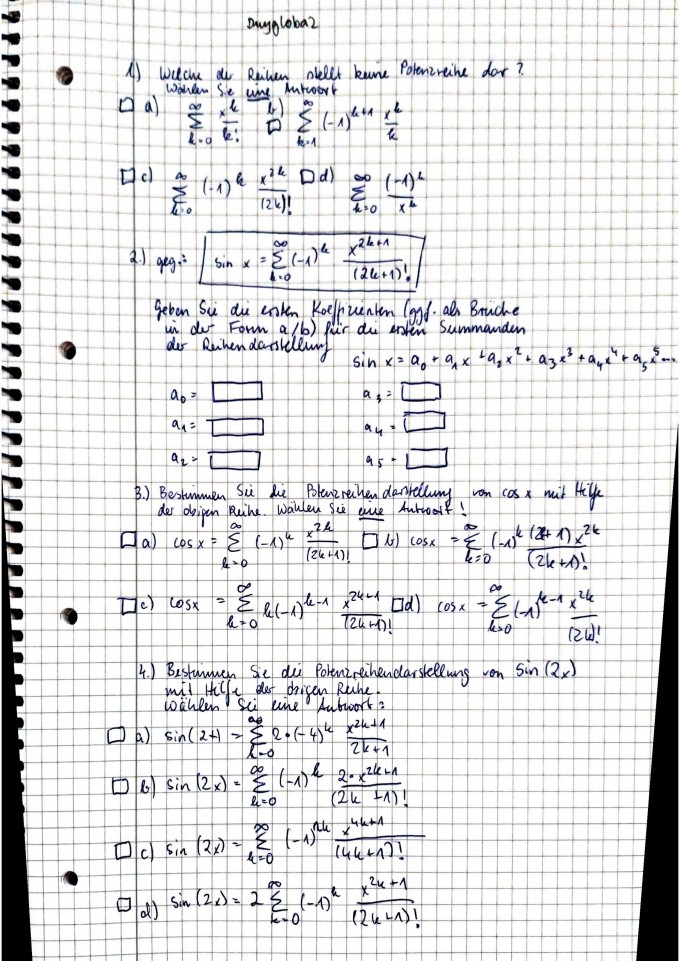 Duygloba2
1) Welche der Reihen stellt keine Potenzreihe dar?
Wählen Sie eine Antwort
☐ a) ∑_{k=0}^{∞} x^k/k! ☐ b) ∑_{k=1}^{∞} (-1)^{k+1} x^k/k
☐ c) ∑_{k=0}^{∞} (-1)^k x^{2k}/(2k)! ☐ d) ∑_{k=0}^{∞} (-1)^k/x^k
2.) geg.: sin x = ∑_{k=0}^{∞} (-1)^k x^{2k+1}/(2k+1)!
Geben Sie die ersten Koeffizienten (ggf. als Brüche
in der Form a/b) für die ersten Summanden
der Reihendarstellung
sin x = a₀ + a₁x + a₂x² + a₃x³ + a₄x⁴ + a₅x⁵...
a₀ = ☐ a₃ = ☐
a₁ = ☐ a₄ = ☐
a₂ = ☐ a₅ = ☐
3.) Bestimmen Sie die Potenzreihendarstellung von cos x mit Hilfe
der obigen Reihe. Wählen Sie eine Antwort!
☐ a) cos x = ∑_{k=0}^{∞} (-1)^k x^{2k}/(2k+1)! ☐ b) cos x = ∑_{k=0}^{∞} (-1)^k (2k+1) x^{2k}/(2k+1)!
☐ c) cos x = ∑_{k=0}^{∞} k(-1)^{k-1} x^{2k+1}/(2k+1)! ☐ d) cos x = ∑_{k=0}^{∞} (-1)^{k-1} x^{2k}/(2k)!
4.) Bestimmen Sie die Potenzreihendarstellung von sin(2x)
mit Hilfe der obigen Reihe.
Wählen Sie eine Antwort:
☐ a) sin(2x) = ∑_{k=0}^{∞} 2·(-4)^k x^{2k+1}/2k+1
☐ b) sin(2x) = ∑_{k=0}^{∞} (-1)^k 2·x^{2k+1}/(2k+1)!
☐ c) sin(2x) = ∑_{k=0}^{∞} (-1)^{2k} x^{4k+1}/(4k+1)!
☐ d) sin(2x) = 2 ∑_{k=0}^{∞} (-1)^k x^{2k+1}/(2k+1)!